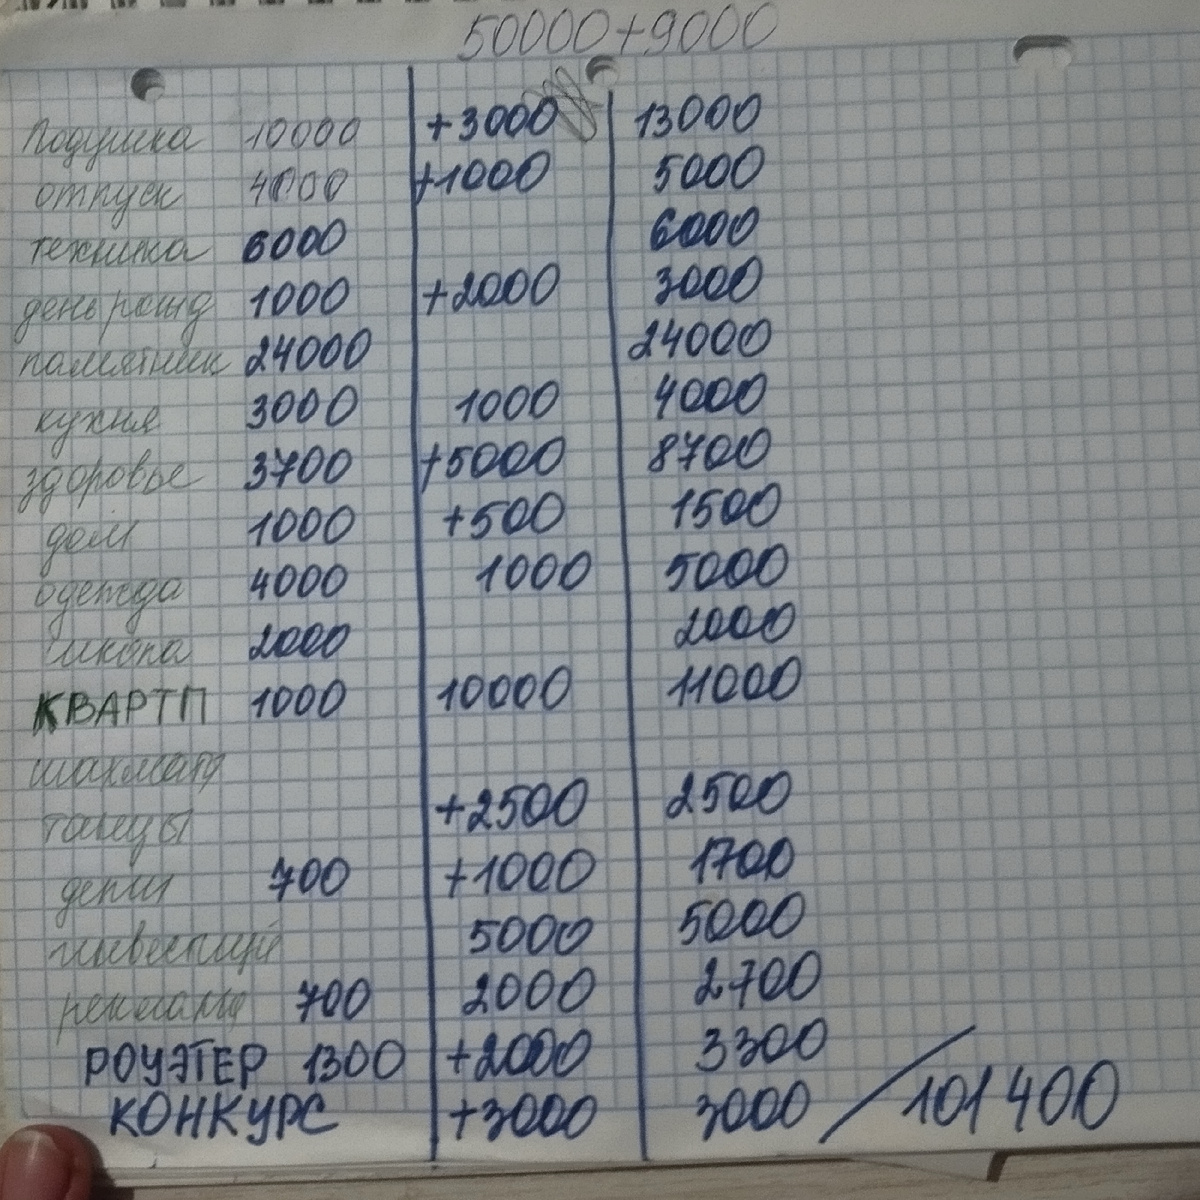 50000+9000
подушка 10000 +3000 13000
отпуск 4000 +1000 5000
техника 6000 6000
день рожд 1000 +2000 3000
памятник 24000 24000
кухня 3000 1000 4000
здоровье 3700 +5000 8700
дом 1000 +500 1500
одежда 4000 1000 5000
школа 2000 2000
КВАРТП 1000 10000 11000
шахматы
танцы +2500 2500
700 +1000 1700
инвестиций 5000 5000
реклама 700 2000 2700
РОУЭТЕР 1300 +2000 3300
КОНКУРС +3000 3000 / 101400